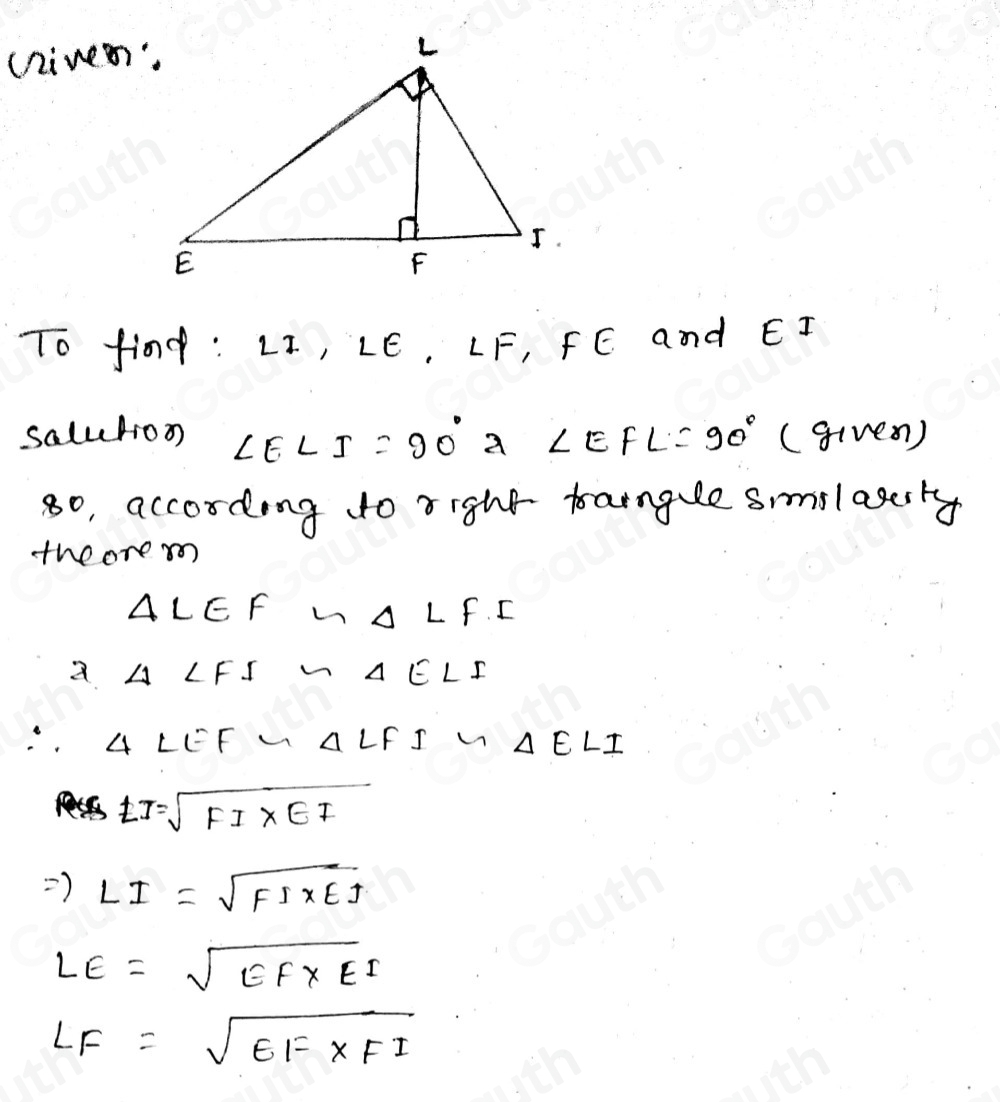 Given:
L
E
F
I.
To find: LI, LE, LF, FE and EI
Salution ∠ELI = 90° & ∠EFL = 90° (given)
so, according to right traingle similarity
theorem
Δ LEF ~ Δ LFI
& Δ LFI ~ Δ ELI
∴ Δ LEF ~ Δ LFI ~ Δ ELI
LI = √FI × EI
=) LI = √FI × EI
LE = √EF × EI
LF = √EF × FI
Gauth